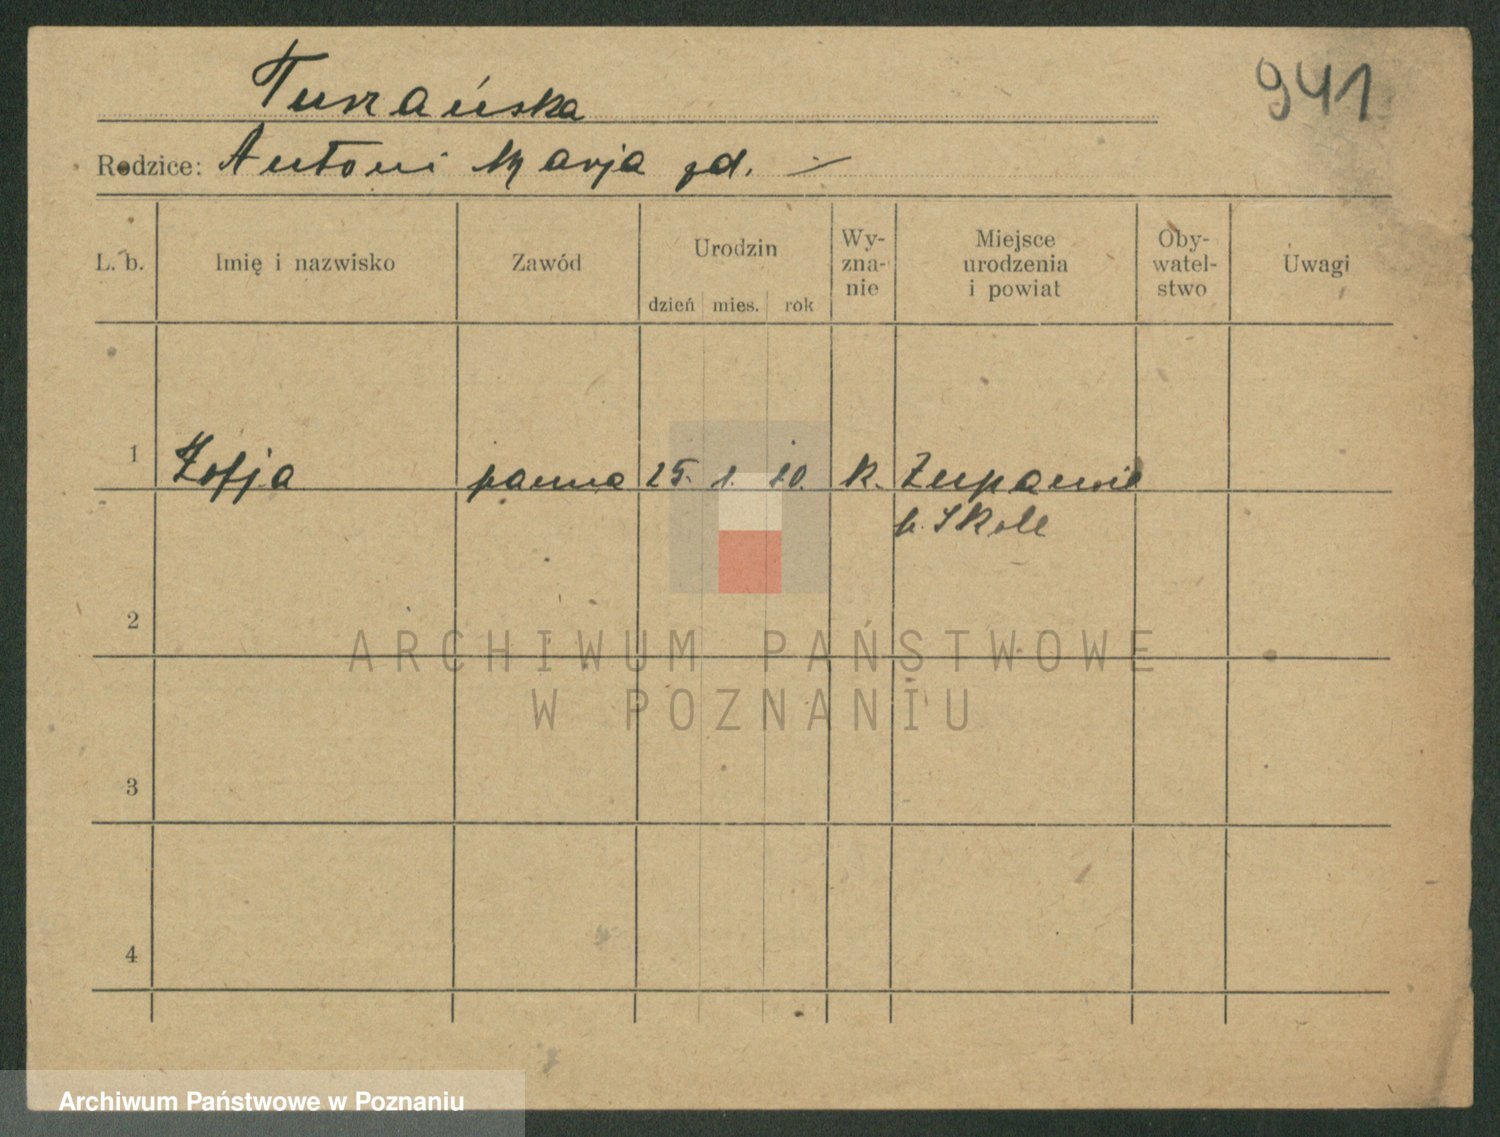 941
Turzańska
Rodzice: Antoni Marja zd. —
L. b. Imię i nazwisko Zawód Urodzin dzień mies. rok Wy-zna-nie Miejsce urodzenia i powiat Oby-watel-stwo Uwagi
1 Zofja panna 25. 1. 10. k. Zupanie
p. Skole
2
ARCHIWUM PAŃSTWOWE
W POZNANIU
3
4
Archiwum Państwowe w Poznaniu